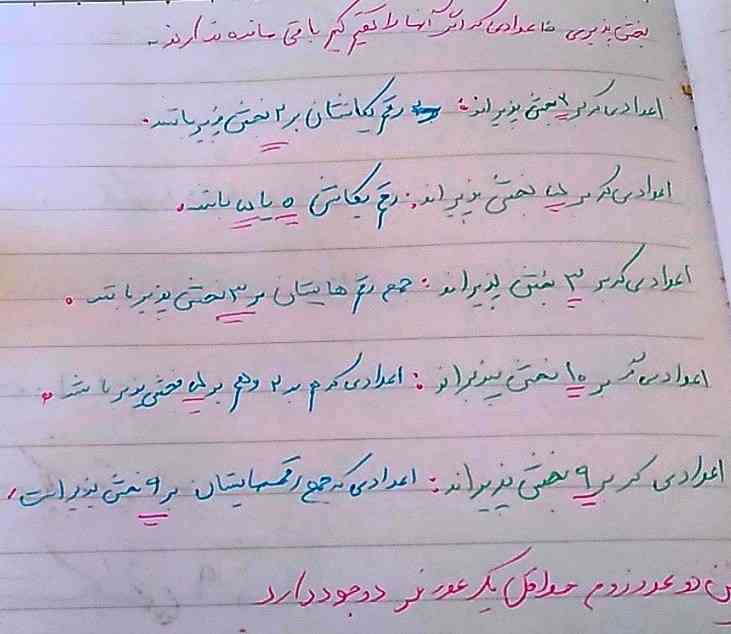 بخش پذیری: اعدادی که اگر آنها را تقسیم کنیم باقی مانده ندارند.
اعدادی که بر ۲ بخش پذیراند: رقم یکانشان بر ۲ بخش پذیر باشد.
اعدادی که بر ۵ بخش پذیراند: رقم یکانش ۵ یا ۰ باشد.
اعدادی که بر ۳ بخش پذیراند: جمع رقم هایشان بر ۳ بخش پذیر باشد.
اعدادی که بر ۱۰ بخش پذیراند: اعدادی که هم بر ۲ و هم بر ۵ بخش پذیر باشد.
اعدادی که بر ۹ بخش پذیراند: اعدادی که جمع رقمهایشان بر ۹ بخش پذیر است.
دو عدد زوج حداقل یک عدد فرد وجود دارد